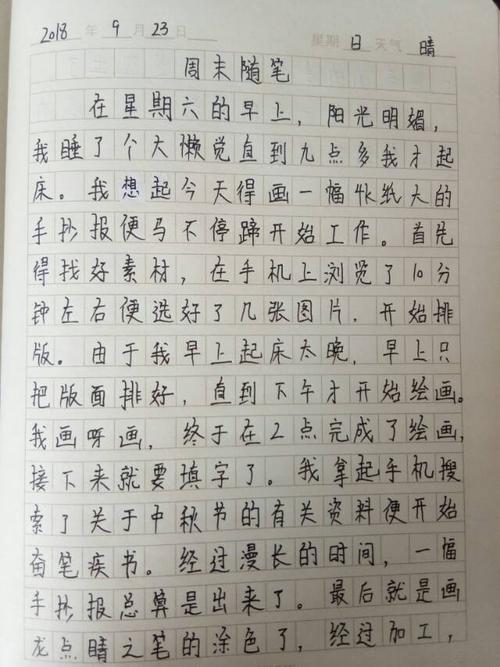 2018 年 9 月 23 日 星期 日 天气 晴
周末随笔
在星期六的早上，阳光明媚，
我睡了个大懒觉直到九点多我才起
床。我想起今天得画一幅4k纸大的
手抄报便马不停蹄开始工作。首先
得找好素材，在手机上浏览了10分
钟左右便选好了几张图片，开始排
版。由于我早上起床太晚，早上只
把版面排好，直到下午才开始绘画。
我画呀画，终于在2点完成了绘画，
接下来就要填字了。我拿起手机搜
索了关于中秋节的有关资料便开始
奋笔疾书。经过漫长的时间，一幅
手抄报总算是出来了。最后就是画
龙点睛之笔的涂色了，经过加工，